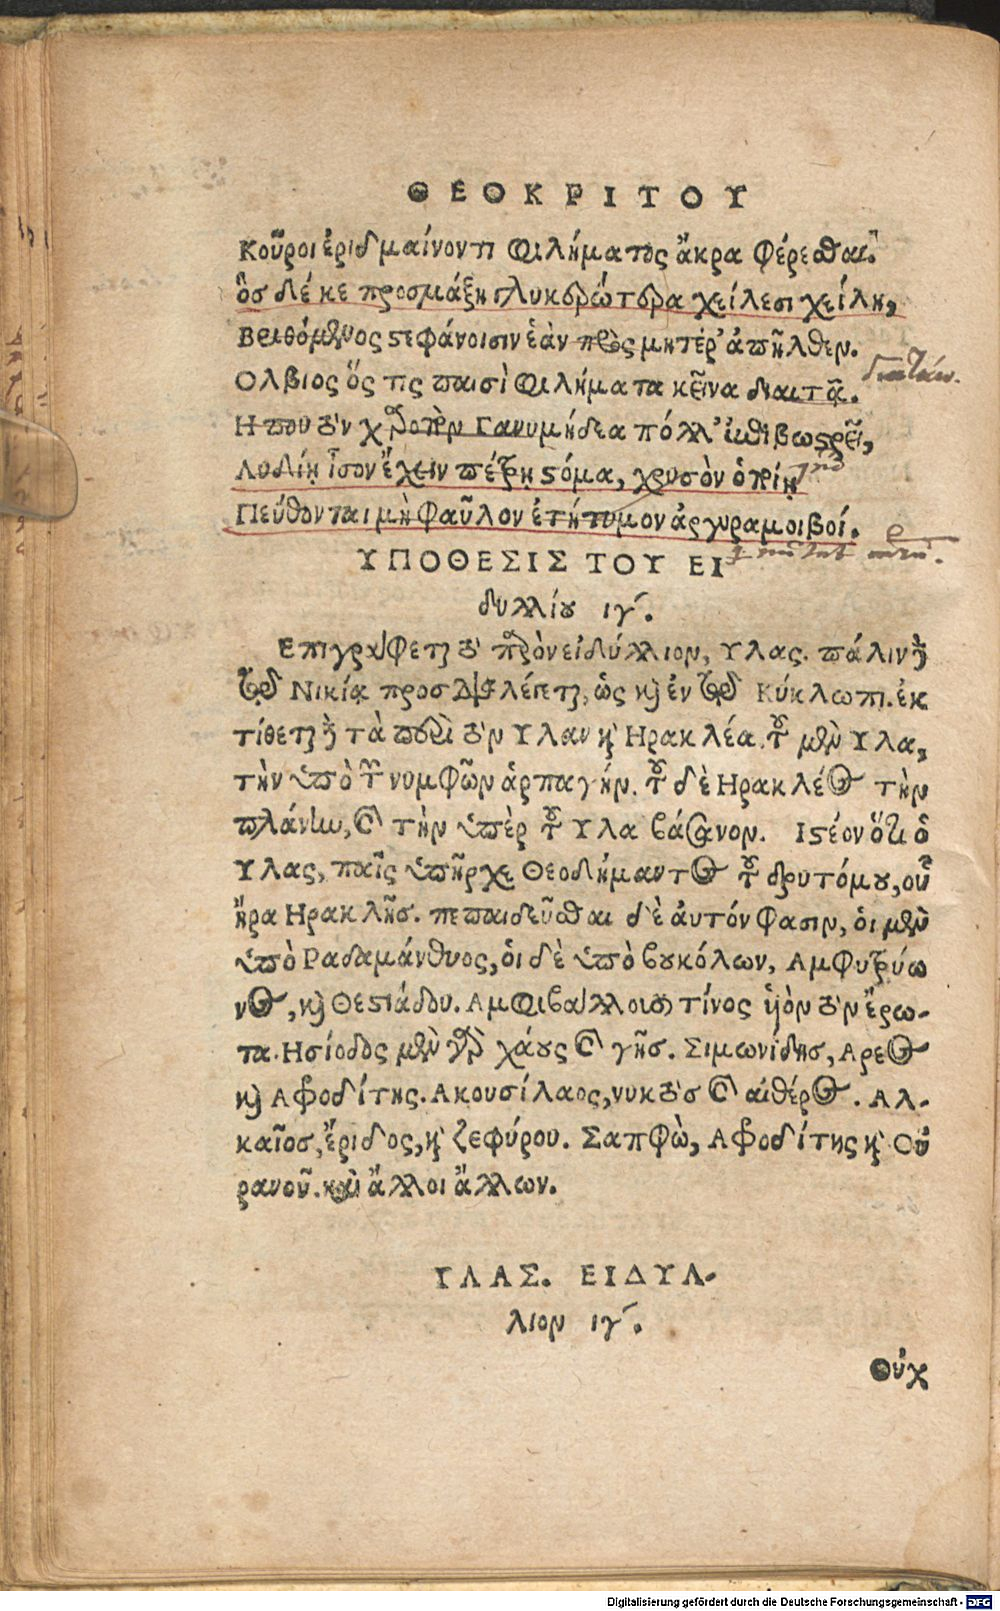 ΘΕΟΚΡΙΤΟΥ
Κοῦροι ἐριδμαίνοντι φιλήματος ἄκρα φέρεσθαι.
ὃς δέ κε προσμάξῃ γλυκερώτερα χείλεσι χείλη,
Βριθόμενος στεφάνοισιν ἑὰν πρὸς μητέρ' ἀπῆλθεν.
Ολβιος ὅς τις παισὶ φιλήματα κεῖνα διαιτᾷ.
Η που τὸν χαροπὸν Γανυμήδεα πόλλ' ἐπιβωστρεῖ,
Λυδίῃ ἶσον ἔχειν πέτρῃ στόμα, χρυσὸν ὁποίῃ
Πεύθονται μὴ φαῦλον ἐτήτυμον ἀργυραμοιβοί.
ΥΠΟΘΕΣΙΣ ΤΟΥ ΕΙ
δυλλίου ιγ΄.
Επιγράφεται τὸ παρὸν εἰδύλλιον, Υλας. πάλιν δὲ
τῷ Νικίᾳ προσδιαλέγεται, ὡς καὶ ἐν τῷ Κύκλωπι. ἐκ
τίθεται δὲ τὰ περὶ τὸν Υλαν καὶ Ηρακλέα. τοῦ μὲν Υλα,
τὴν ὑπὸ τῶν νυμφῶν ἁρπαγήν. τοῦ δὲ Ηρακλέος τὴν
πλάνην, καὶ τὴν ὑπὲρ τοῦ Υλα βάσανον. Ιστέον ὅτι ὁ
Υλας, παῖς ὑπῆρχε Θεοδήμαντος τοῦ δρυτόμου, οὗ
ἤρα Ηρακλῆς. πεπαιδεῦσθαι δὲ ἀυτόν φασιν, ὁι μὲν
ὑπὸ Ραδαμάνθυος, ὁι δὲ ὑπὸ βουκόλων, Αμφιτρύω
νος, καὶ Θεστιάδου. Αμφιβάλλουσι τίνος υἱὸν τὸν ἔρω-
τα. Ησίοδος μὲν γὰρ χάους καὶ γῆς. Σιμωνίδης, Αρεος
καὶ Αφροδίτης. Ακουσίλαος, νυκτὸς καὶ αἰθέρος. Αλ-
καῖος, ἔριδος, καὶ ζεφύρου. Σαπφὼ, Αφροδίτης καὶ Οὐ
ρανοῦ. καὶ ἄλλοι ἄλλων.
ΥΛΑΣ. ΕΙΔΥΛ-
λιον ιγ΄.
Οὐχ
Digitalisierung gefördert durch die Deutsche Forschungsgemeinschaft - DFG